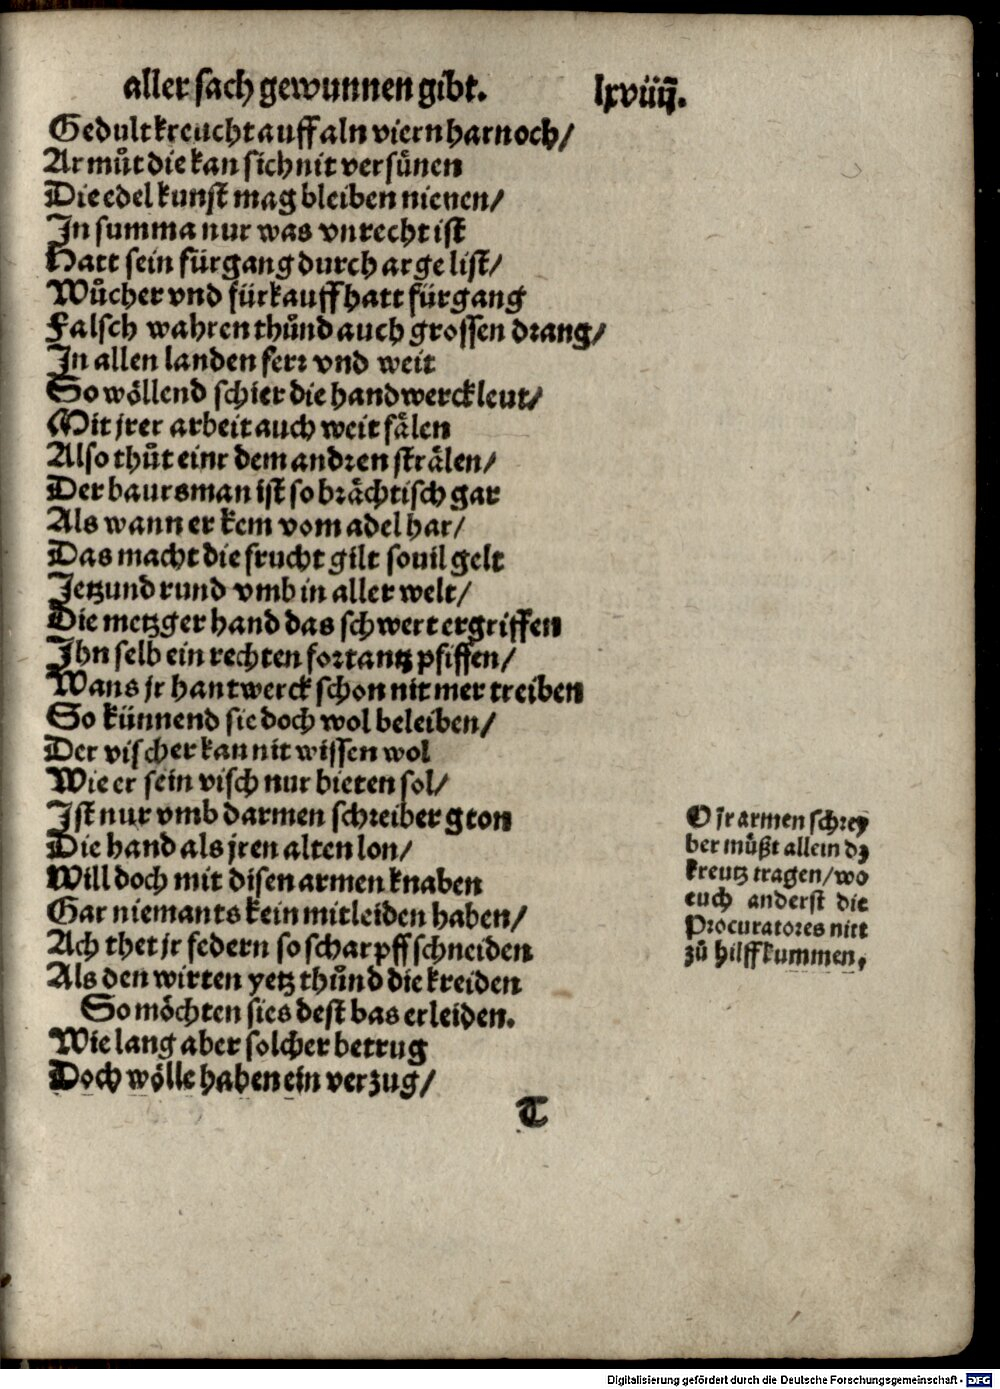 aller sach gewunnen gibt. lxviiij.
Gedult kreucht auff aln viern harnoch/
Armůt die kan sich nit versünen
Die edel kunst mag bleiben nienen/
In summa nur was vnrecht ist
Hatt sein fürgang durch arge list/
Wůcher vnd fürkauff hatt fürgang
Falsch wahren thůnd auch grossen drang/
In allen landen ferr vnd weit
So wöllend schier die handwerckleut/
Mit jrer arbeit auch weit fälen
Also thůt einr dem andren strälen/
Der baursman ist so brächtisch gar
Als wann er kem vom adel har/
Das macht die frucht gilt souil gelt
Jetzund rund vmb in aller welt/
Die metzger hand das schwert ergriffen
Ihn selb ein rechten fortantz pfiffen/
Wans jr hantwerck schon nit mer treiben
So künnend sie doch wol beleiben/
Der vischer kan nit wissen wol
Wie er sein visch nur bieten sol/
Ist nur vmb d armen schreiber gton
Die hand als jren alten lon/
Will doch mit disen armen knaben
Gar niemants kein mitleiden haben/
Ach thet jr federn so scharpff schneiden
Als den wirten yetz thůnd die kreiden
So möchten sies dest bas erleiden.
Wie lang aber solcher betrug
Doch wölle haben ein verzug/
O jr armen schrey
ber müßt allein dz
kreutz tragen/wo
euch anderst die
Procuratores nitt
zů hilff kummen,
T
Digitalisierung gefördert durch die Deutsche Forschungsgemeinschaft - DFG